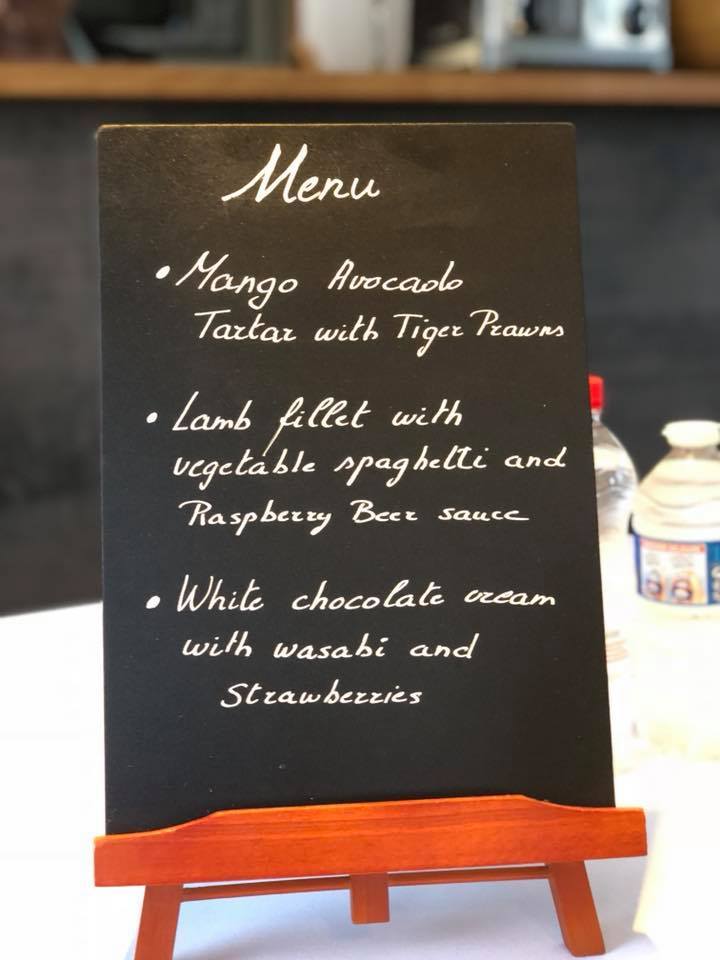 Menu
• Mango Avocado
Tartar with Tiger Prawns
• Lamb fillet with
vegetable spaghetti and
Raspberry Beer sauce
• White chocolate cream
with wasabi and
Strawberries